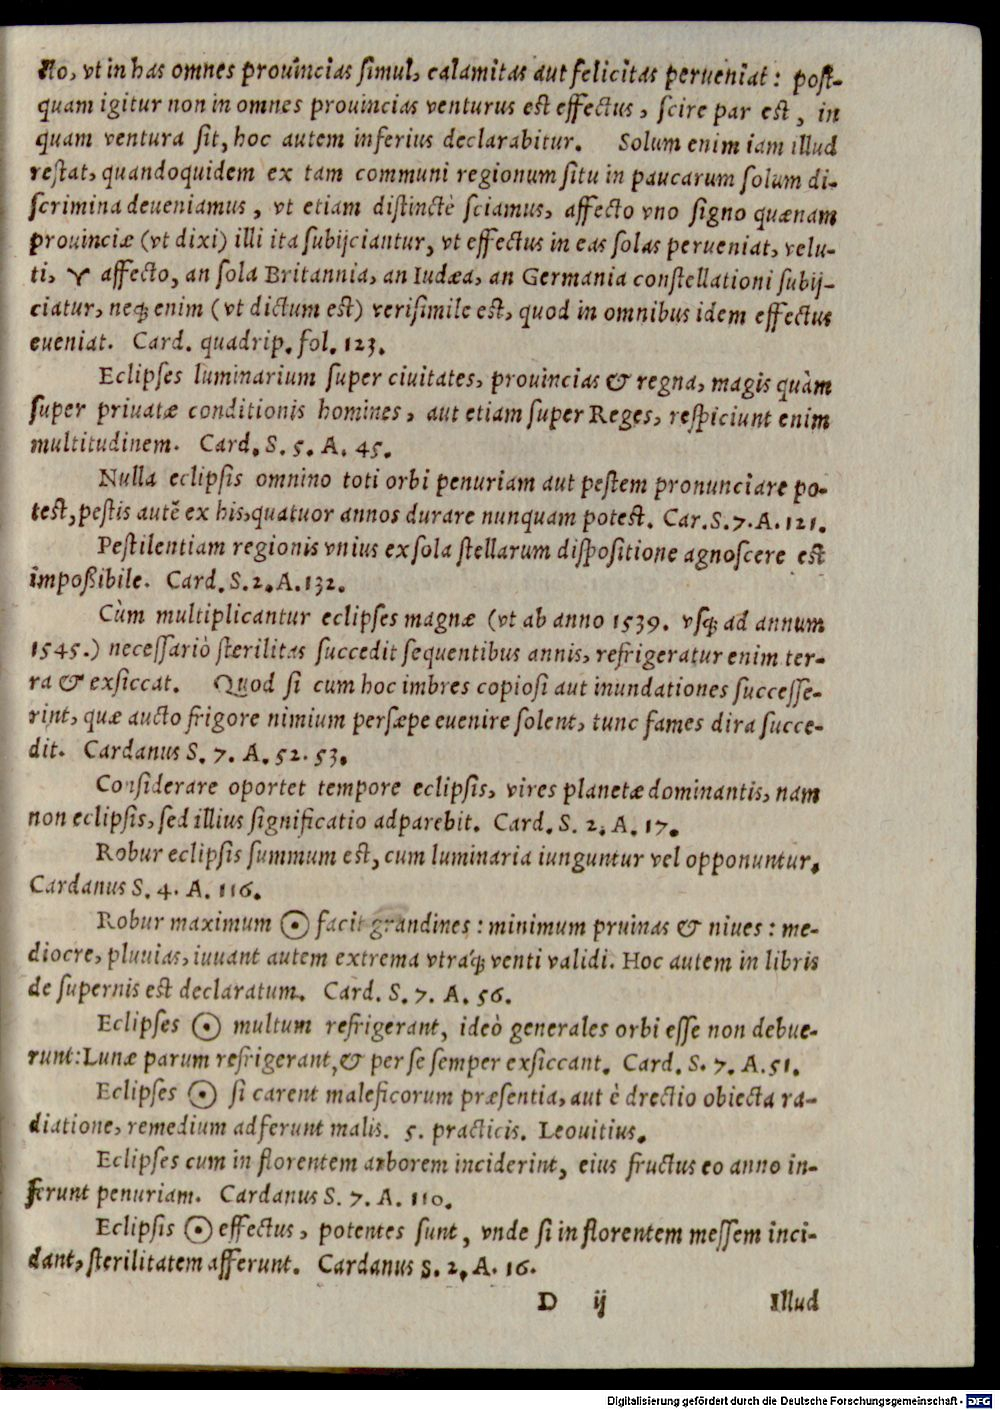 sto, vt in has omnes prouincias simul, calamitas aut felicitas perueniat: post-
quam igitur non in omnes prouincias venturus est effectus, scire par est, in
quam ventura sit, hoc autem inferius declarabitur. Solum enim iam illud
restat, quandoquidem ex tam communi regionum situ in paucarum solum di-
scrimina deueniamus, vt etiam distinctè sciamus, affecto vno signo quænam
prouinciæ (vt dixi) illi ita subijciantur, vt effectus in eas solas perueniat, velu-
ti, ♈ affecto, an sola Britannia, an Iudæa, an Germania constellationi subij-
ciatur, neq; enim (vt dictum est) verisimile est, quod in omnibus idem effectus
eueniat. Card. quadrip. fol. 123.
Eclipses luminarium super ciuitates, prouincias & regna, magis quàm
super priuatæ conditionis homines, aut etiam super Reges, respiciunt enim
multitudinem. Card. S. 5. A. 45.
Nulla eclipsis omnino toti orbi penuriam aut pestem pronunciare po-
test, pestis autē ex his, quatuor annos durare nunquam potest. Car. S. 7. A. 121.
Pestilentiam regionis vnius ex sola stellarum dispositione agnoscere est
impoßibile. Card. S. 2. A. 132.
Cùm multiplicantur eclipses magnæ (vt ab anno 1539. vsq; ad annum
1545.) necessariò sterilitas succedit sequentibus annis, refrigeratur enim ter-
ra & exsiccat. Quod si cum hoc imbres copiosi aut inundationes successe-
rint, quæ aucto frigore nimium persæpe euenire solent, tunc fames dira succe-
dit. Cardanus S. 7. A. 52. 53.
Considerare oportet tempore eclipsis, vires planetæ dominantis, nam
non eclipsis, sed illius significatio adparebit. Card. S. 2. A. 17.
Robur eclipsis summum est, cum luminaria iunguntur vel opponuntur.
Cardanus S. 4. A. 116.
Robur maximum ☉ facit grandines: minimum pruinas & niues: me-
diocre, pluuias, iuuant autem extrema vtraq; venti validi. Hoc autem in libris
de supernis est declaratum. Card. S. 7. A. 56.
Eclipses ☉ multum refrigerant, ideò generales orbi esse non debue-
runt: Lunæ parum refrigerant, & per se semper exsiccant. Card. S. 7. A. 51.
Eclipses ☉ si carent maleficorum præsentia, aut è drectio obiecta ra-
diatione, remedium adferunt malis. 5. practicis. Leouitius.
Eclipses cum in florentem arborem inciderint, eius fructus eo anno in-
ferunt penuriam. Cardanus S. 7. A. 110.
Eclipsis ☉ effectus, potentes sunt, vnde si in florentem messem inci-
dant, sterilitatem afferunt. Cardanus S. 2. A. 16.
D ij Illud
Digitalisierung gefördert durch die Deutsche Forschungsgemeinschaft - DFG